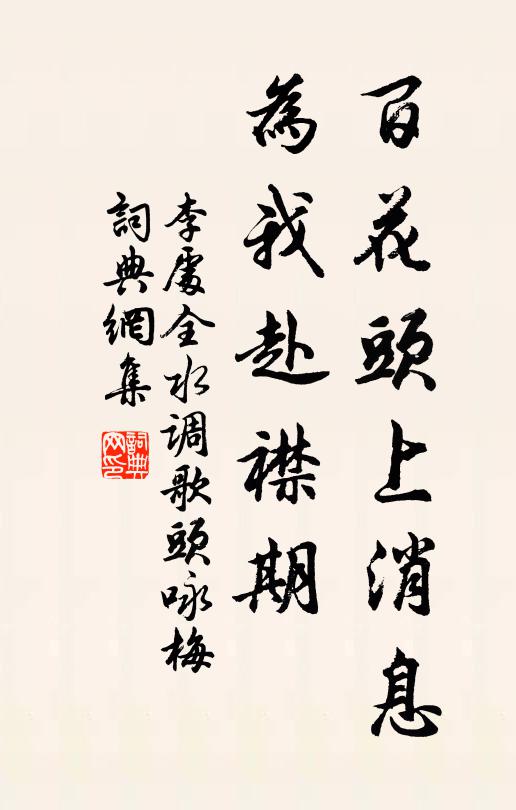 百花頭上消息
為我赴襟期
李處全水调歌頭咏梅
詞典網集
詞典網印